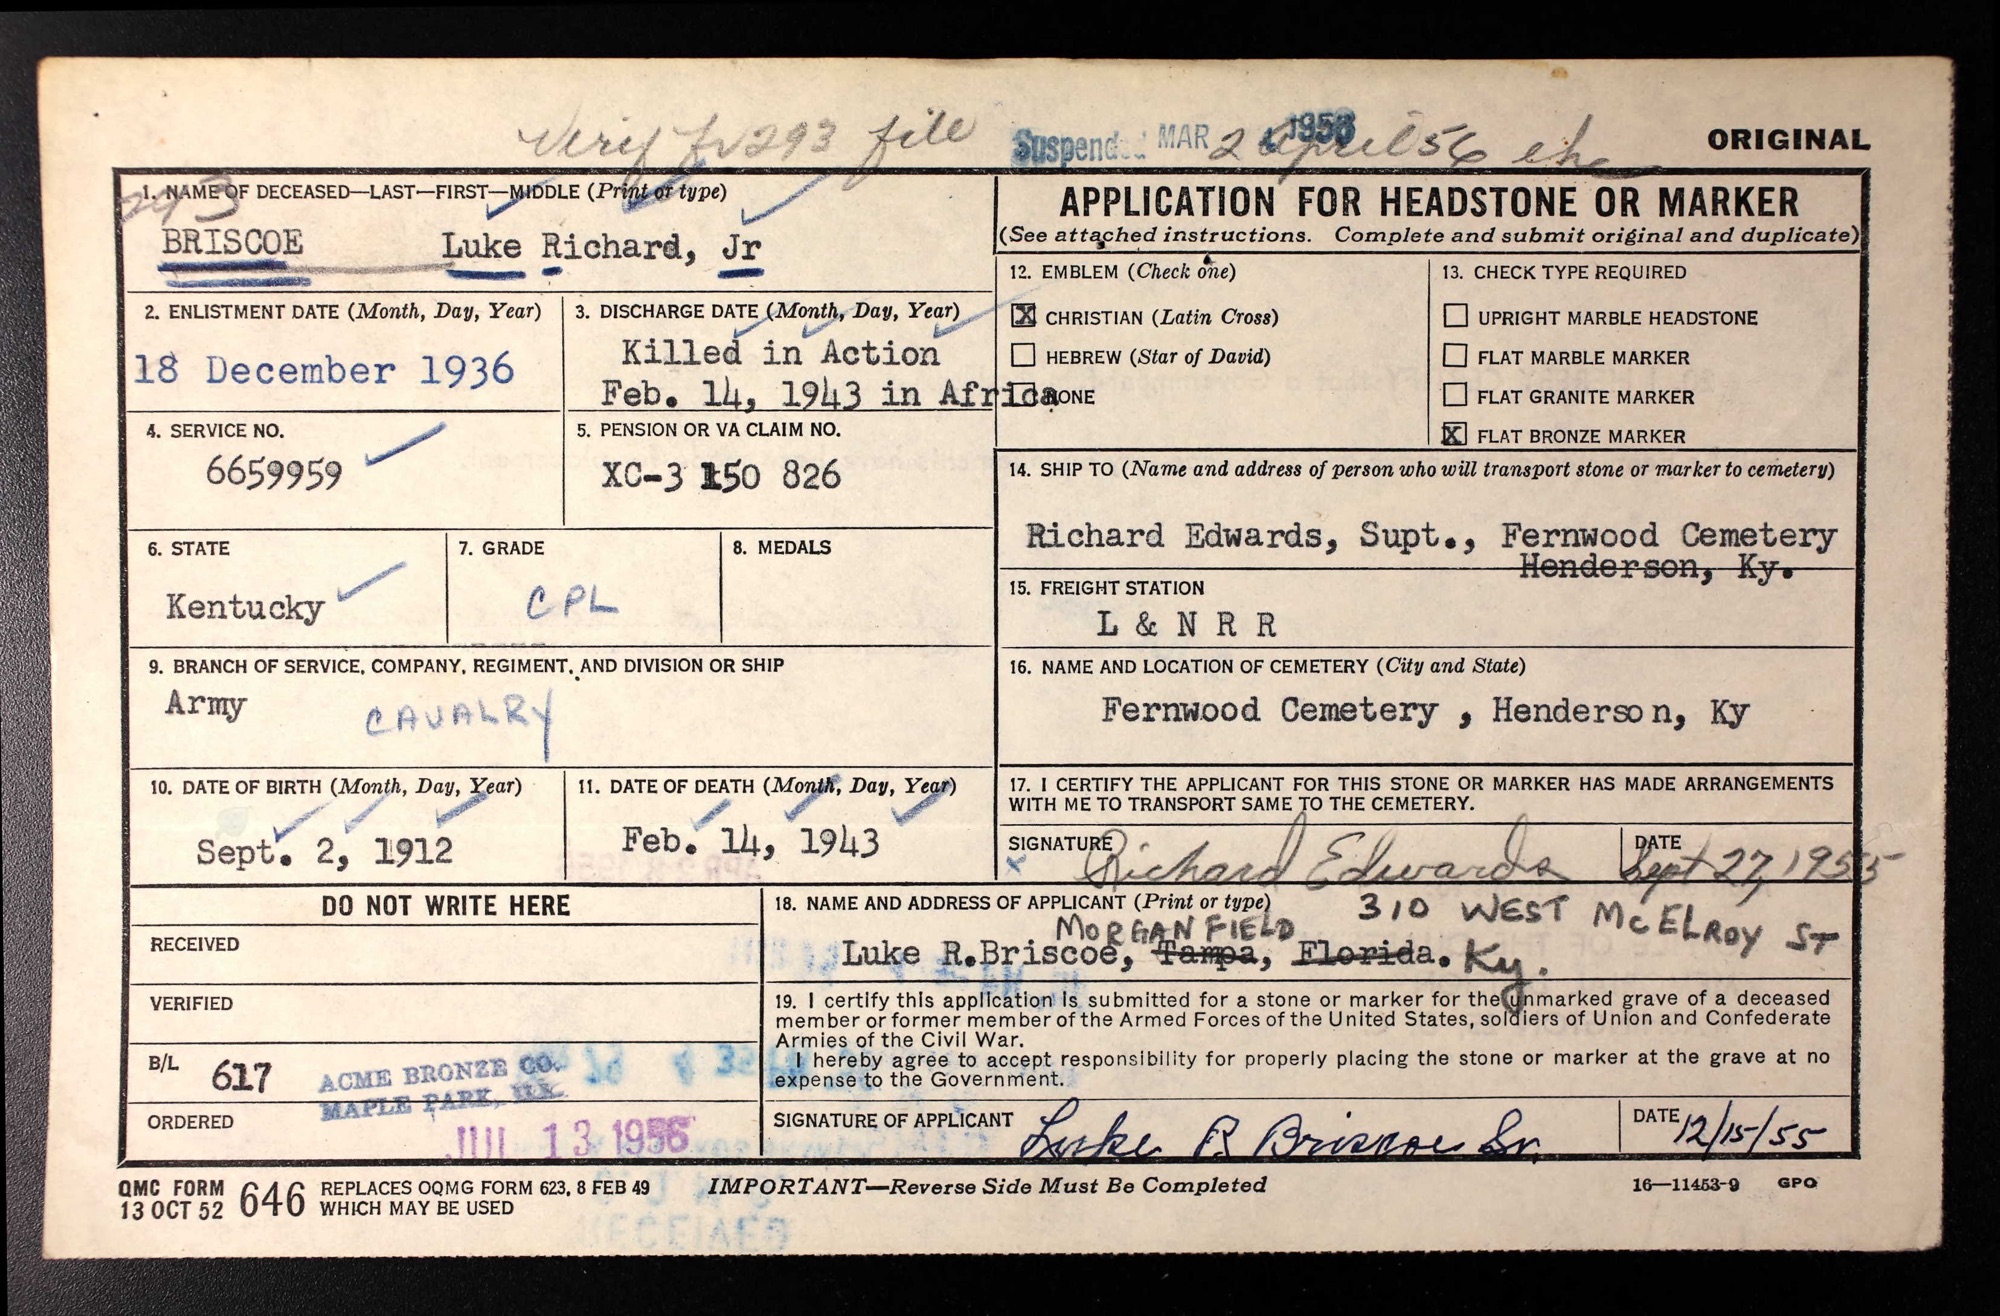 Verif fr 293 file
Suspended MAR 1956
2 April 56
ORIGINAL
293
1. NAME OF DECEASED—LAST—FIRST—MIDDLE (Print or type)
BRISCOE Luke Richard, Jr
APPLICATION FOR HEADSTONE OR MARKER
(See attached instructions. Complete and submit original and duplicate)
2. ENLISTMENT DATE (Month, Day, Year)
18 December 1936
3. DISCHARGE DATE (Month, Day, Year)
Killed in Action
Feb. 14, 1943 in Africa
12. EMBLEM (Check one)
X CHRISTIAN (Latin Cross)
HEBREW (Star of David)
NONE
13. CHECK TYPE REQUIRED
UPRIGHT MARBLE HEADSTONE
FLAT MARBLE MARKER
FLAT GRANITE MARKER
X FLAT BRONZE MARKER
4. SERVICE NO.
6659959
5. PENSION OR VA CLAIM NO.
XC-3 150 826
14. SHIP TO (Name and address of person who will transport stone or marker to cemetery)
Richard Edwards, Supt., Fernwood Cemetery
Henderson, Ky.
6. STATE
Kentucky
7. GRADE
CPL
8. MEDALS
15. FREIGHT STATION
L & N R R
9. BRANCH OF SERVICE, COMPANY, REGIMENT, AND DIVISION OR SHIP
Army CAVALRY
16. NAME AND LOCATION OF CEMETERY (City and State)
Fernwood Cemetery , Henderson, Ky
10. DATE OF BIRTH (Month, Day, Year)
Sept. 2, 1912
11. DATE OF DEATH (Month, Day, Year)
Feb. 14, 1943
17. I CERTIFY THE APPLICANT FOR THIS STONE OR MARKER HAS MADE ARRANGEMENTS
WITH ME TO TRANSPORT SAME TO THE CEMETERY.
SIGNATURE
x Richard Edwards
DATE
Sept 27, 1955
DO NOT WRITE HERE
RECEIVED
VERIFIED
B/L 617
ACME BRONZE CO.
MAPLE PARK, ILL.
ORDERED
JUL 13 1956
18. NAME AND ADDRESS OF APPLICANT (Print or type)
310 WEST McELROY ST
MORGANFIELD
Luke R.Briscoe, Tampa, Florida. Ky.
19. I certify this application is submitted for a stone or marker for the unmarked grave of a deceased
member or former member of the Armed Forces of the United States, soldiers of Union and Confederate
Armies of the Civil War.
I hereby agree to accept responsibility for properly placing the stone or marker at the grave at no
expense to the Government.
SIGNATURE OF APPLICANT
Luke R Briscoe Sr.
DATE 12/15/55
QMC FORM
13 OCT 52
646
REPLACES OQMG FORM 623, 8 FEB 49
WHICH MAY BE USED
IMPORTANT—Reverse Side Must Be Completed
16—11453-9 GPO